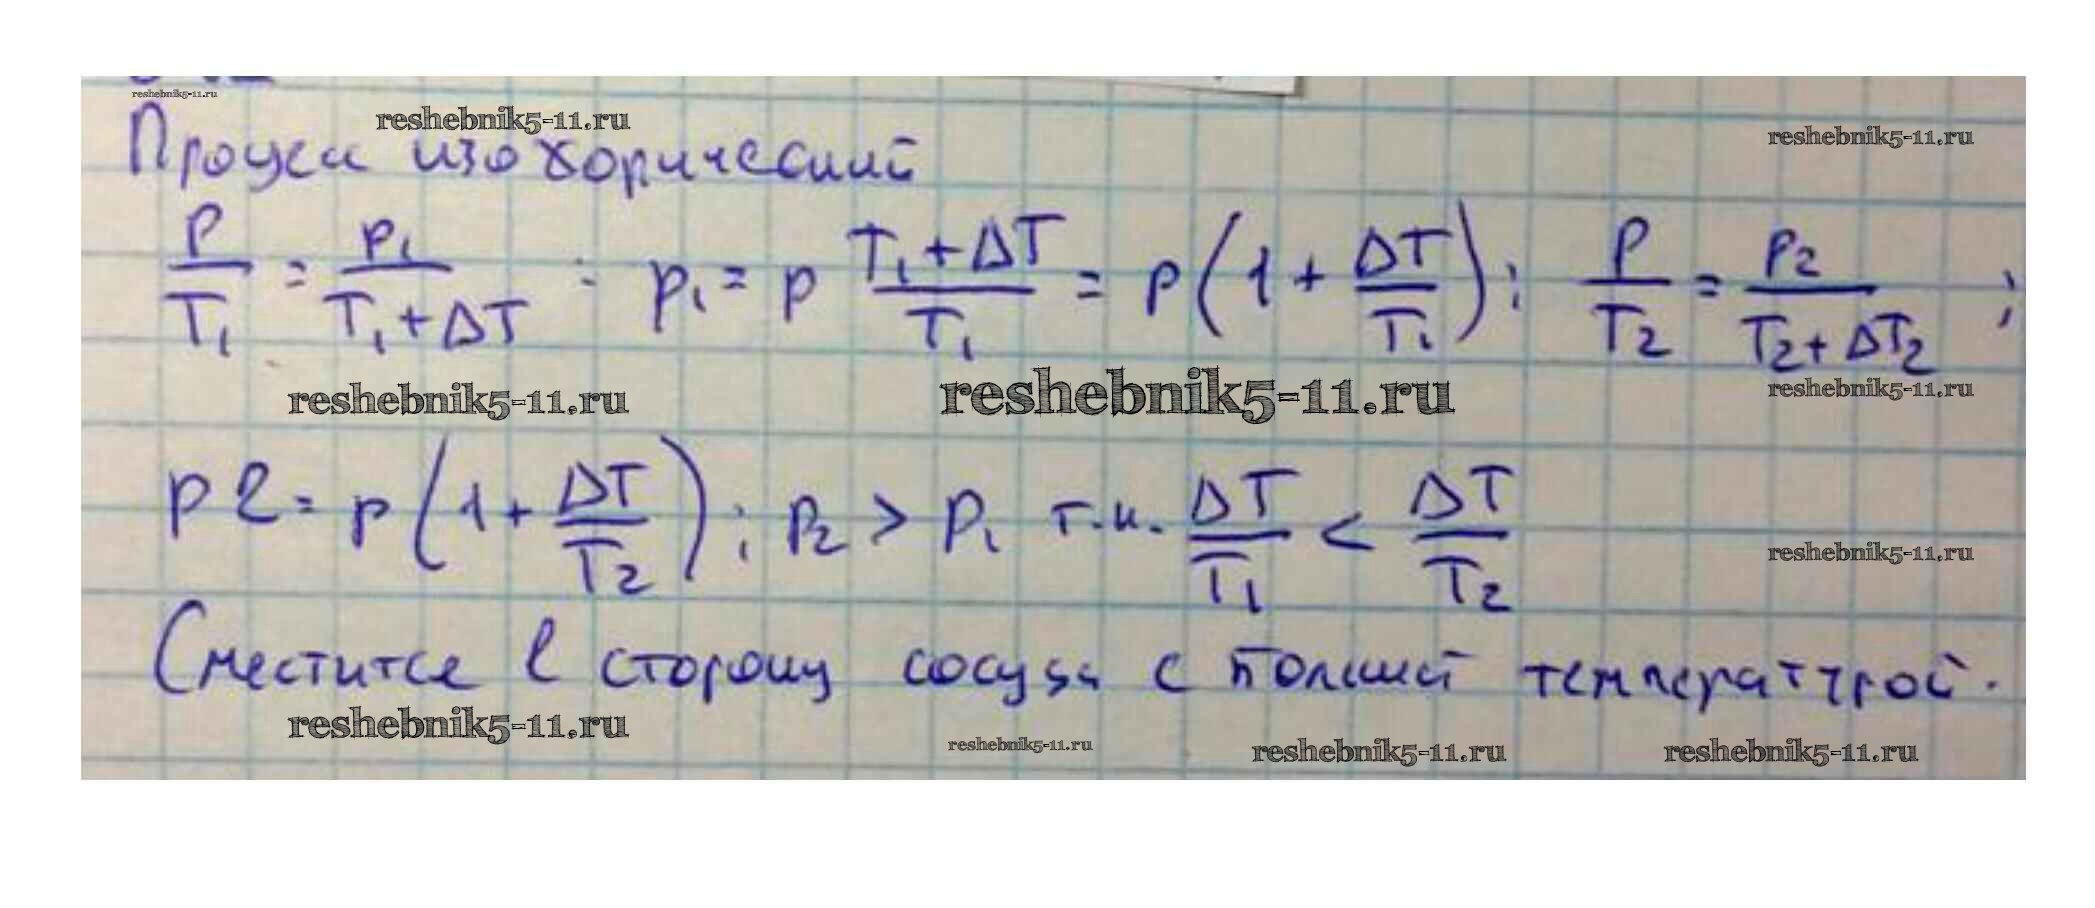 reshebnik5-11.ru
reshebnik5-11.ru
reshebnik5-11.ru
Процесс изохорический
P/T₁ = P₁/(T₁+ΔT) : P₁ = P (T₁+ΔT)/T₁ = P(1+ΔT/T₁); P/T₂ = P₂/(T₂+ΔT₂) ;
reshebnik5-11.ru reshebnik5-11.ru reshebnik5-11.ru
P2 = P(1+ΔT/T₂); P₂ > P₁ т.к. ΔT/T₁ < ΔT/T₂
reshebnik5-11.ru
Сместится в сторону сосуда с большей температурой.
reshebnik5-11.ru reshebnik5-11.ru reshebnik5-11.ru reshebnik5-11.ru